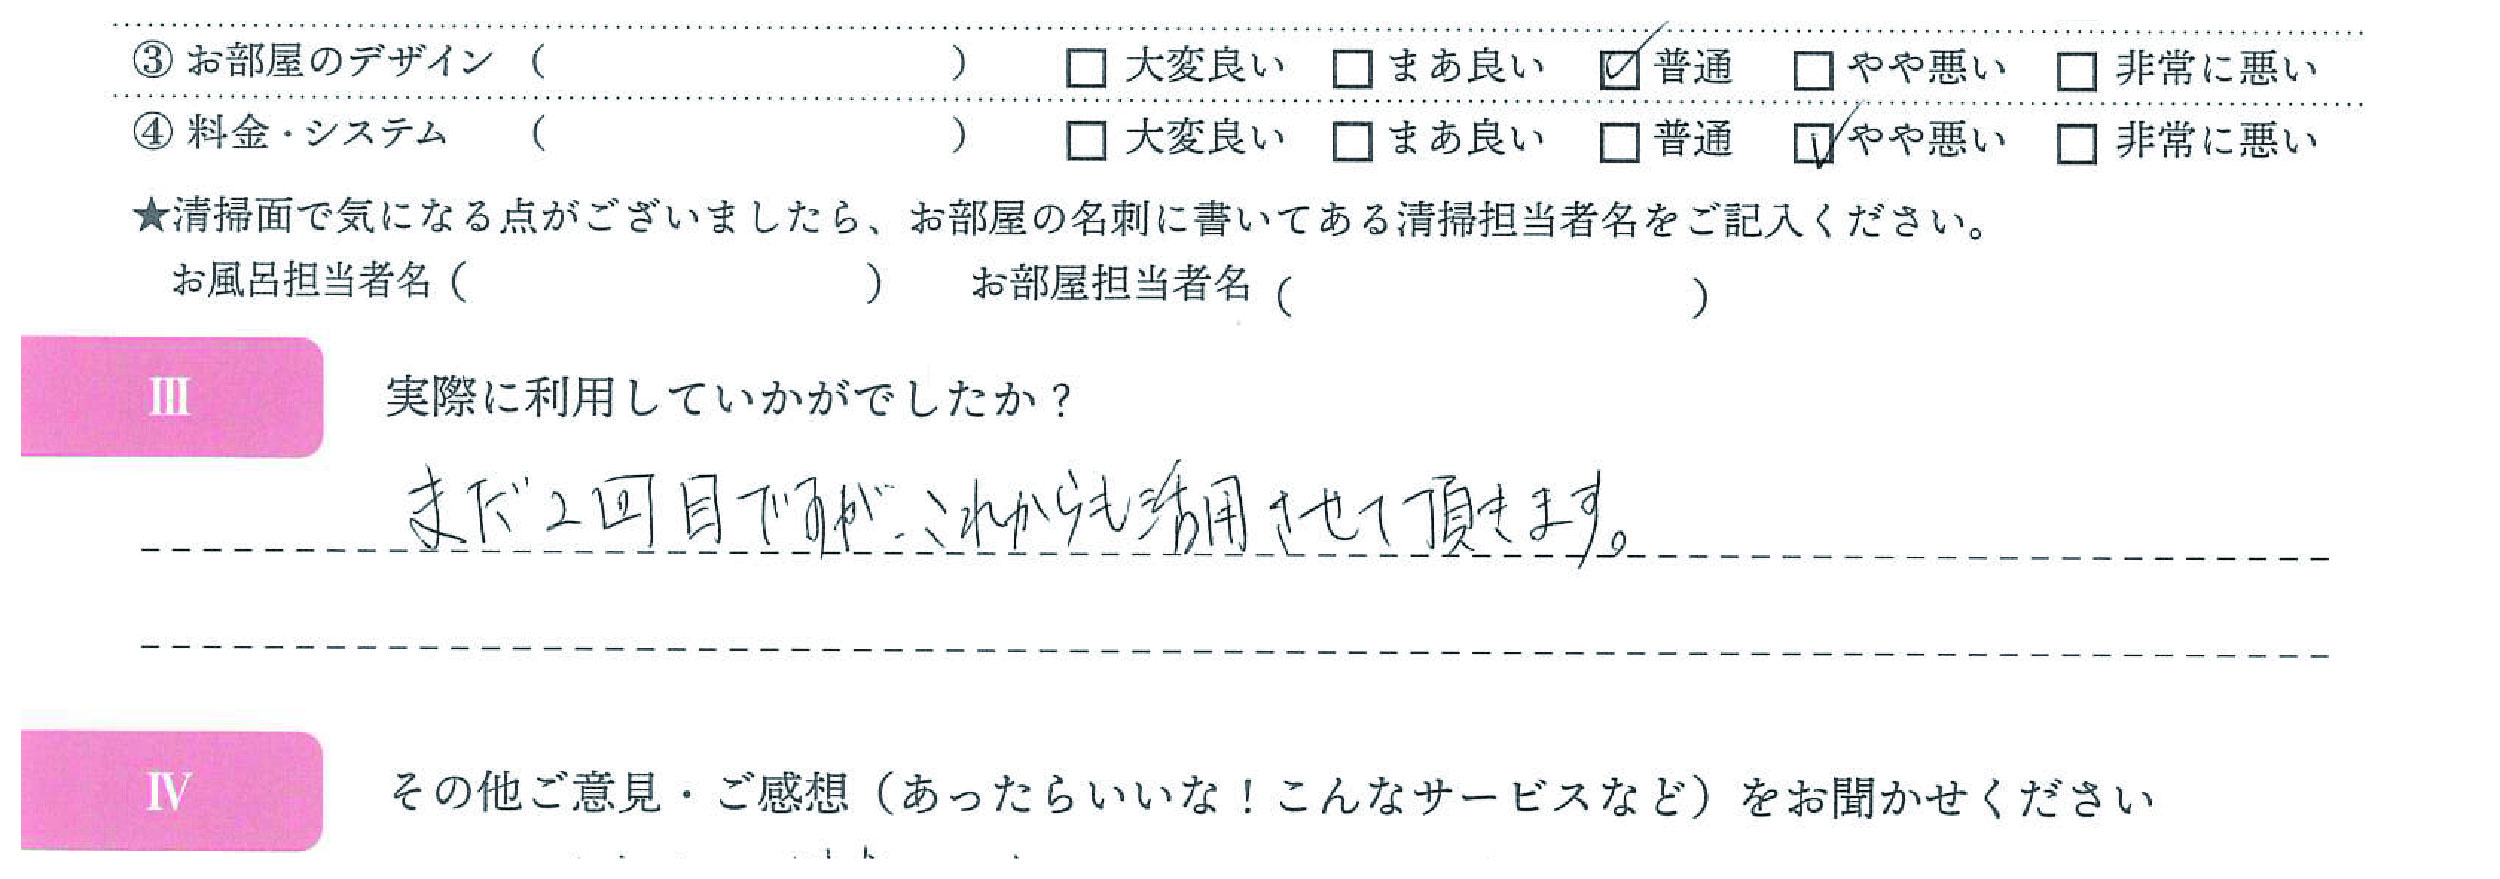 ③ お部屋のデザイン ( ) □ 大変良い □ まあ良い ☑ 普通 □ やや悪い □ 非常に悪い
④ 料金・システム ( ) □ 大変良い □ まあ良い □ 普通 ☑ やや悪い □ 非常に悪い
★清掃面で気になる点がございましたら、お部屋の名刺に書いてある清掃担当者名をご記入ください。
お風呂担当者名 ( ) お部屋担当者名 ( )
Ⅲ 実際に利用していかがでしたか?
まだ2回目ですが、これからも活用させて頂きます。
Ⅳ その他ご意見・ご感想(あったらいいな!こんなサービスなど)をお聞かせください